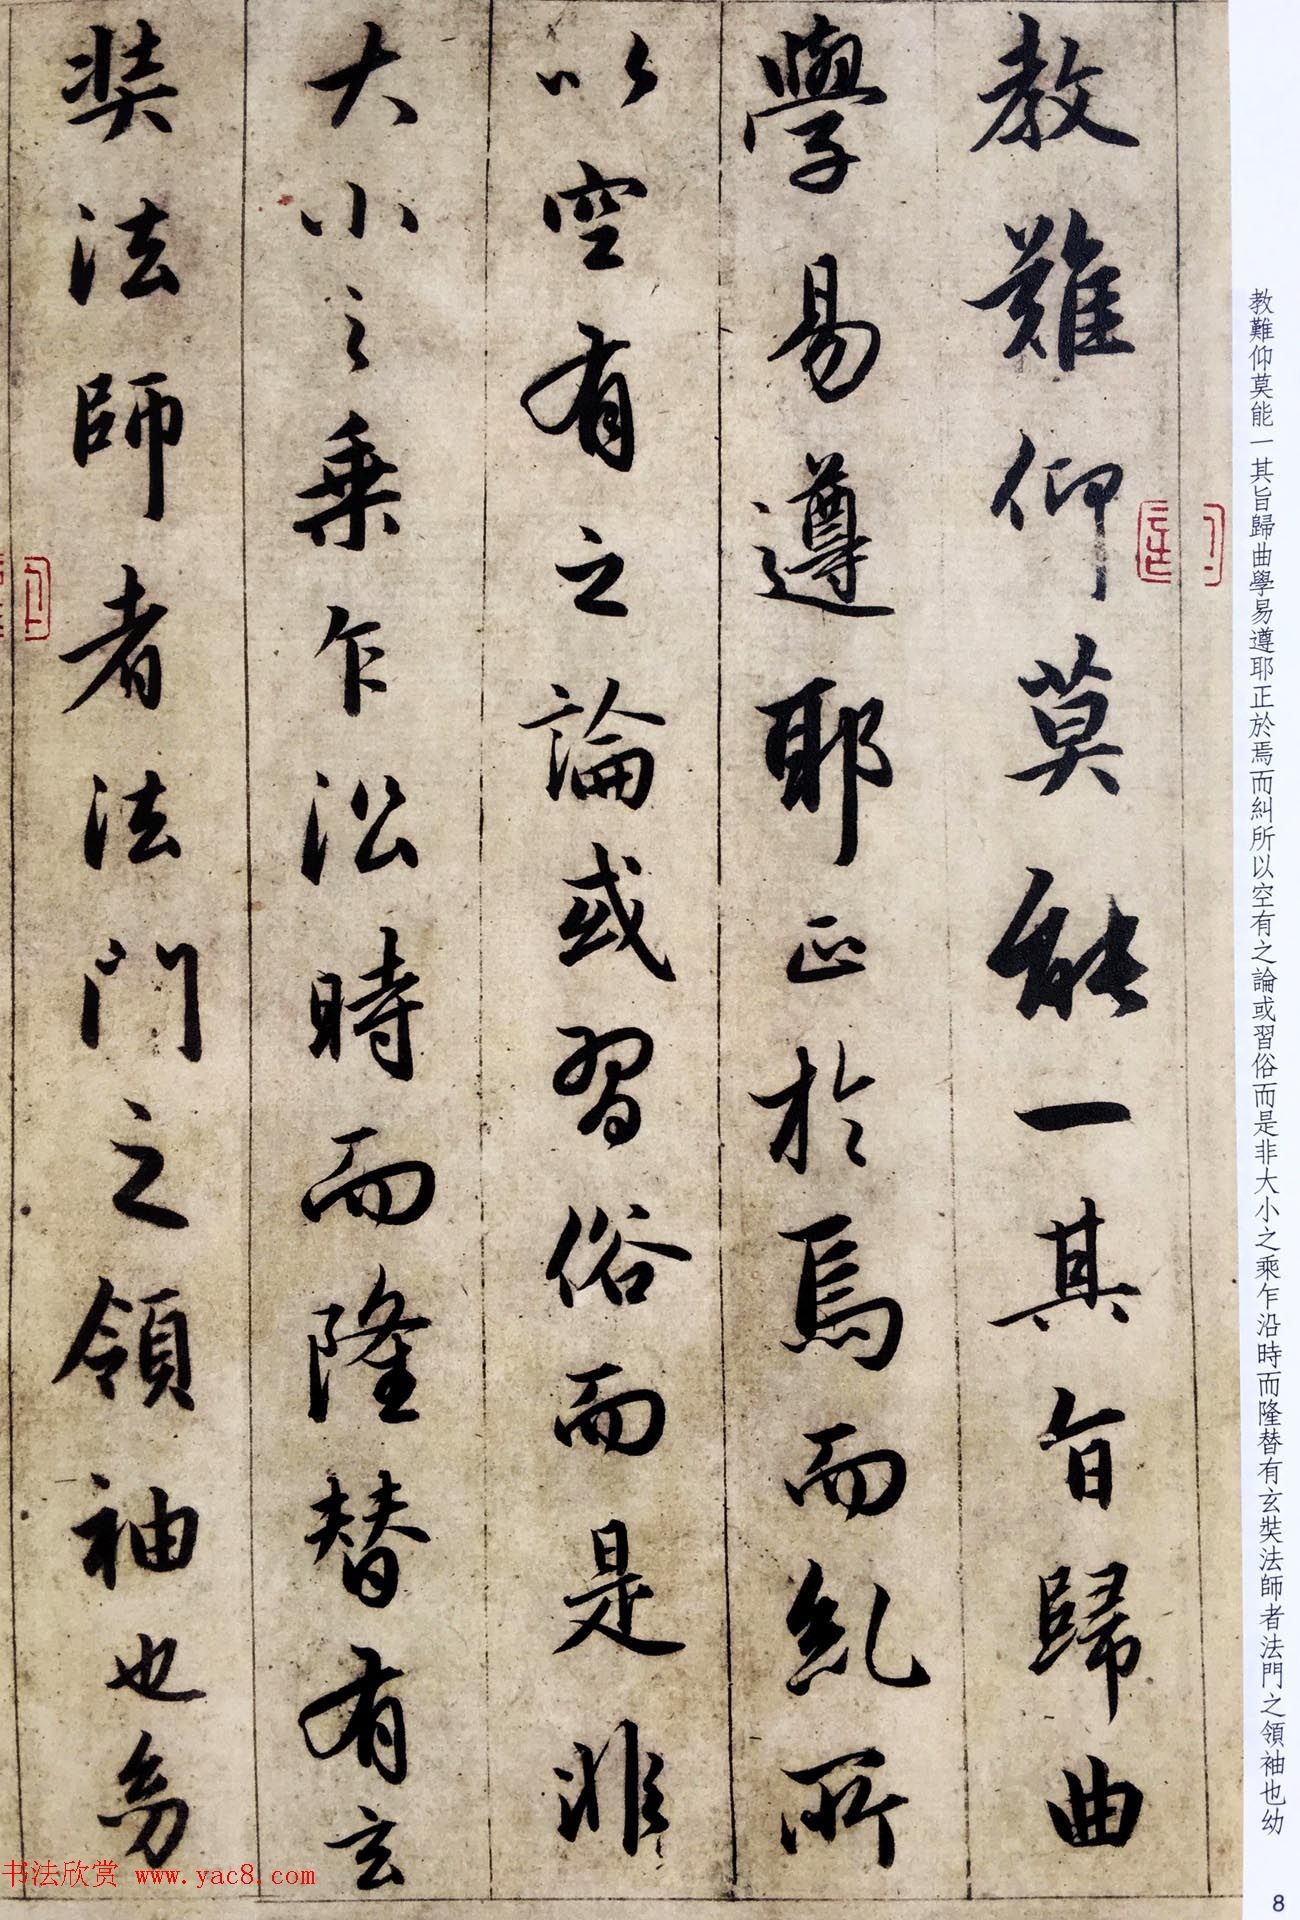 教難仰莫能一其旨歸曲
學易遵耶正於焉而糺所
以空有之論或習俗而是非
大小之乘乍沿時而隆替有玄
奘法師者法門之領袖也幼
教難仰莫能一其旨歸曲學易遵耶正於焉而糾所以空有之論或習俗而是非大小之乘乍沿時而隆替有玄奘法師者法門之領袖也幼
8
书法欣赏 www.yac8.com